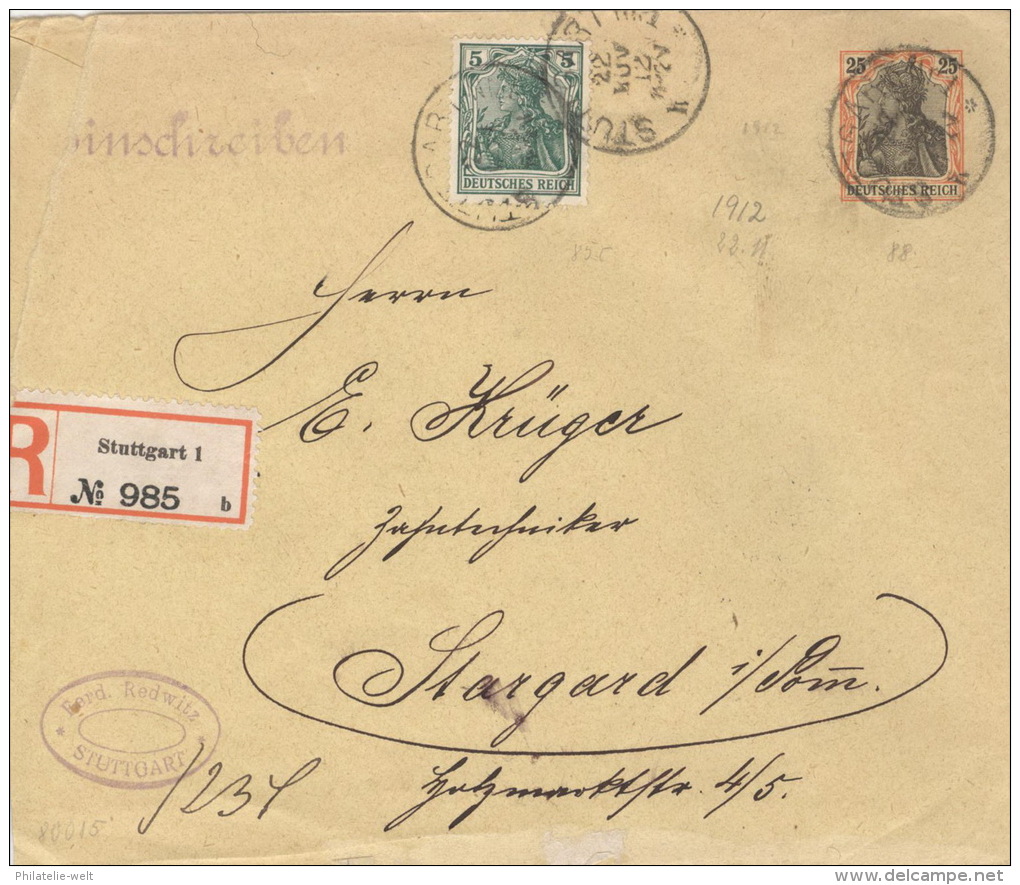 Einschreiben
5 5
DEUTSCHES REICH
25 25
DEUTSCHES REICH
STUTTGART
22
NOV
12
STUTTGART
1912
1912
22.11
88
Herrn
E. Krüger
Zahntechniker
Stargard i/Pomm.
Holzmarktstr. 4/5.
R
Stuttgart 1
№ 985 b
Ferd. Redwitz
STUTTGART
80015
Philatelie-welt